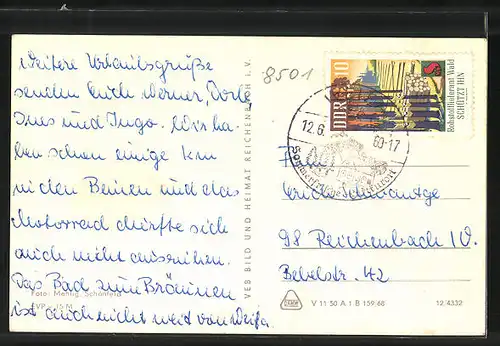 Weitere Urlaubsgrüße
senden Euch Werner, Dorle
Ines und Ingo. Wir ha-
ben schon einige km
in den Beinen und das
Motorrad dürfte sich
auch nicht ausruhen.
Das Bad zum Bräunen
ist auch nicht weit von
Foto: Schönfeld
8501
VEB BILD UND HEIMAT REICHENBACH i. V.
DDR 10
Rohstofflieferant Wald
SCHÜTZT IHN
12.6. 60-17
98 Reichenbach i. V.
Bebelstr. 42
V 11 50 A 1 B 159/68 12/4332